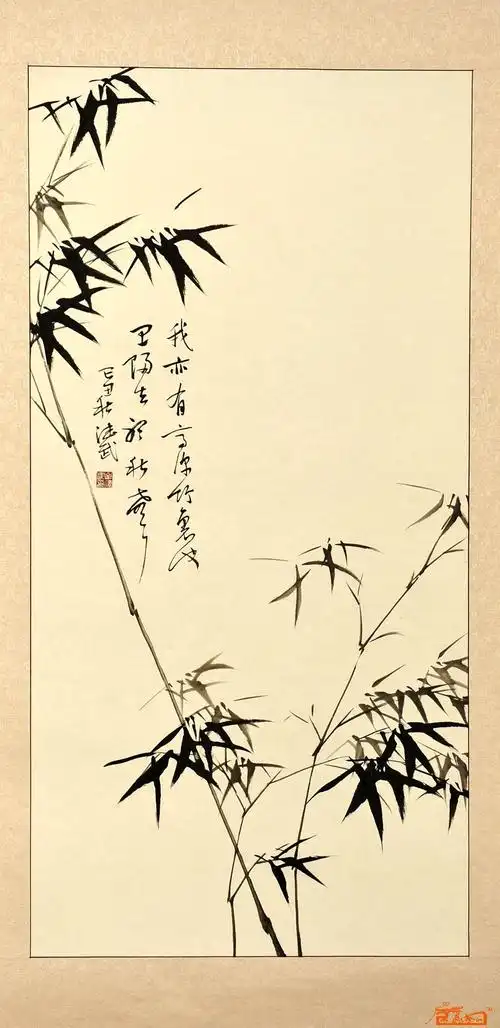 我亦有亭深竹裏也
思歸去聽秋聲
秋
武